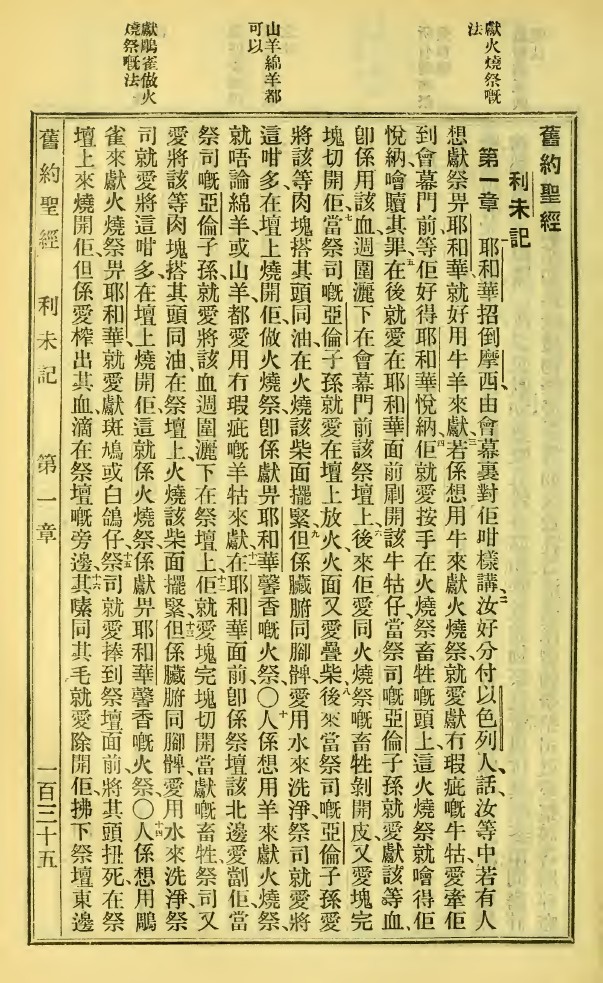 獻火燒祭嘅
法
山羊綿羊都
可以
獻鵰雀做火
燒祭嘅法
舊約聖經
利未記
第一章 耶和華招倒摩西、由會幕裏對佢咁樣講、二汝好分付以色列人話、汝等中若有人
想獻祭畀耶和華、就好用牛羊來獻、三若係想用牛來獻火燒祭、就愛獻冇瑕疵嘅牛牯、愛牽佢
到會幕門前、等佢好得耶和華悅納、四佢就愛按手在火燒祭畜牲嘅頭上、這火燒祭就噲得佢
悅納、噲贖其罪、五在後就愛在耶和華面前㓾開該牛牯仔、當祭司嘅亞倫子孫就愛獻該等血、
卽係用該血、週圍灑下在會幕門前該祭壇上、六後來佢愛同火燒祭嘅畜牲剝開皮、又愛塊完
塊切開佢、七當祭司嘅亞倫子孫就愛在壇上放火、火面又愛疊柴、八後來當祭司嘅亞倫子孫愛
將該等肉塊、搭其頭同油、在火燒該柴面擺緊、九但係臟腑同腳髀、愛用水來洗淨、祭司就愛將
這咁多在壇上燒開佢、做火燒祭、卽係獻畀耶和華馨香嘅火祭、〇十人係想用羊來獻火燒祭、
就唔論綿羊或山羊、都愛用冇瑕疵嘅羊牯來獻、十一在耶和華面前、卽係祭壇該北邊、愛劏佢、當
祭司嘅亞倫子孫、就愛將該血週圍灑下在祭壇上、十二佢就愛塊完塊切開當獻嘅畜牲、祭司又
愛將該等肉塊、搭其頭同油、在祭壇上、火燒該柴面擺緊、十三但係臟腑同腳髀、愛用水來洗淨、祭
司就愛將這咁多在壇上燒開佢、這就係火燒祭、係獻畀耶和華馨香嘅火祭、〇十四人係想用鵰
雀來獻火燒祭畀耶和華、就愛獻斑鳩或白鴿仔、十五祭司就愛捧到祭壇面前、將其頭扭死、在祭
壇上來燒開佢、但係愛榨出其血、滴在祭壇嘅旁邊、十六其嗉同其毛就愛除開佢、拂下祭壇東邊
舊約聖經 利未記 第一章 一百三十五